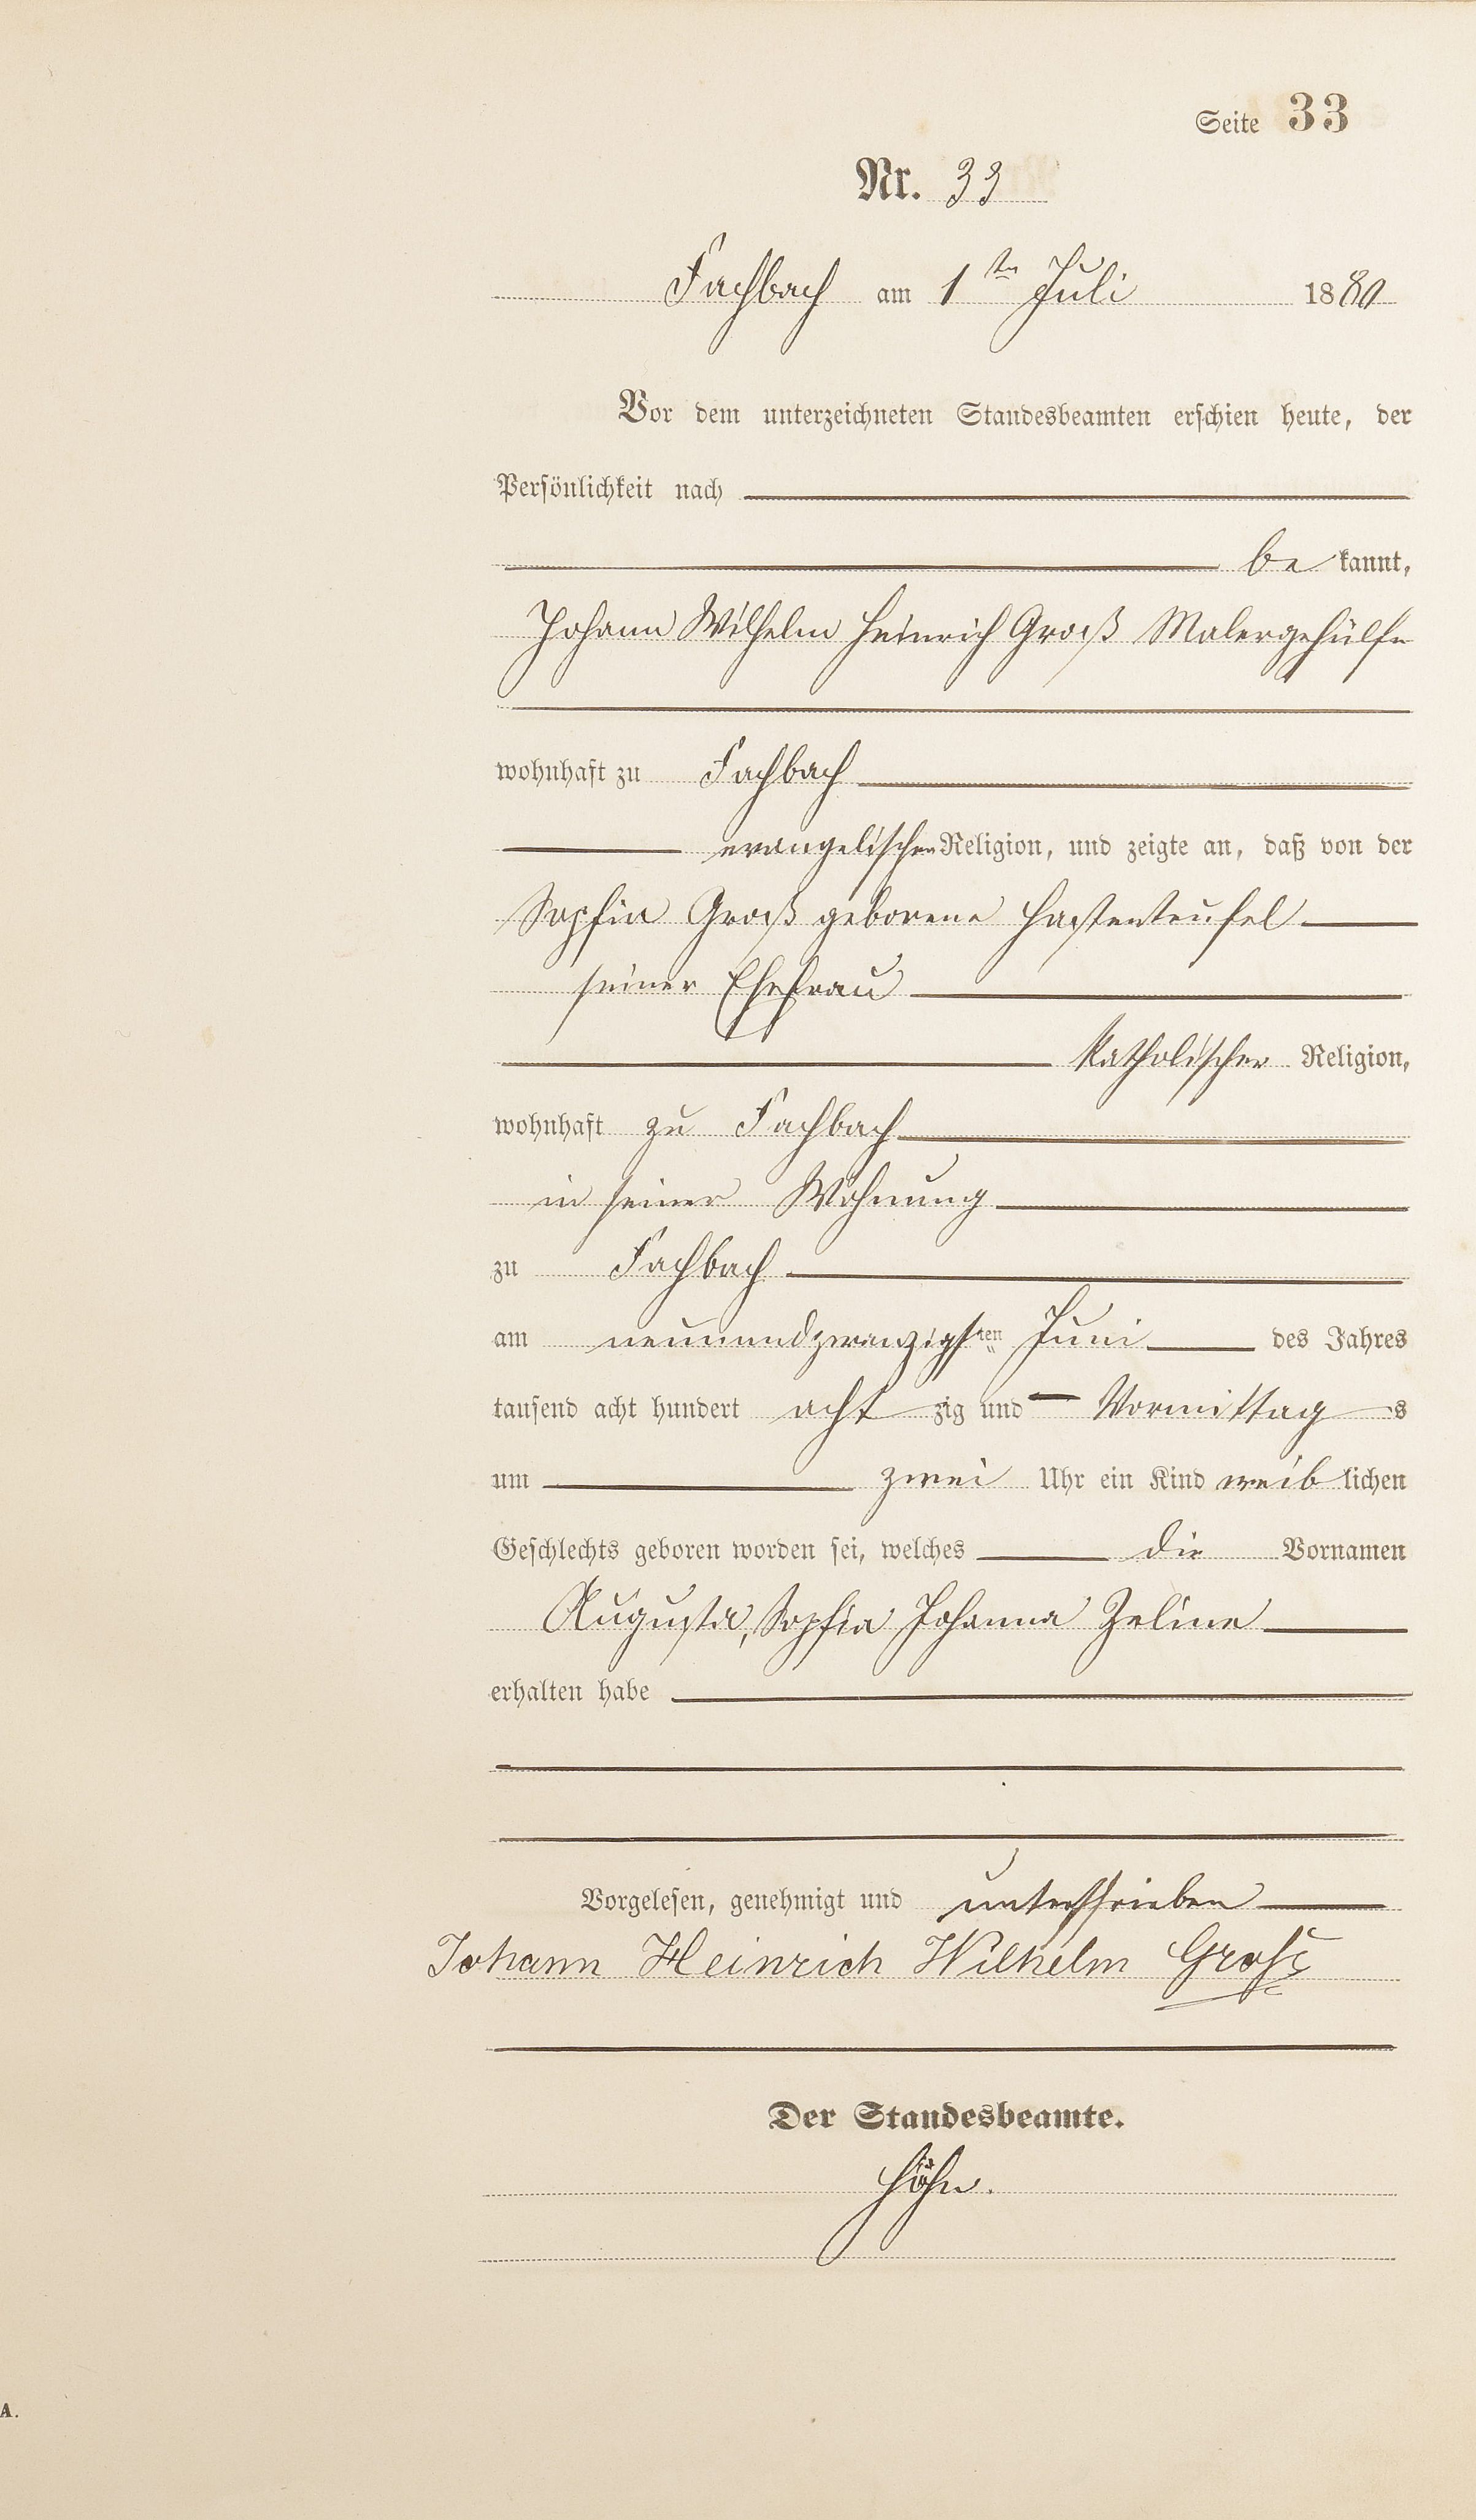 Seite 33
Nr. 33
Fachbach am 1ten Juli 1880
Vor dem unterzeichneten Standesbeamten erschien heute, der
Persönlichkeit nach
bekannt,
Johann Wilhelm Heinrich Groß Malergehülfe
wohnhaft zu Fachbach
evangelischer Religion, und zeigte an, daß von der
Sophia Groß geborene Hastenteufel
seiner Ehefrau
katholischer Religion,
wohnhaft zu Fachbach
in seiner Wohnung
zu Fachbach
am neunundzwanzigsten Juni des Jahres
tausend acht hundert achtzig und Vormittags
um zwei Uhr ein Kind weiblichen
Geschlechts geboren worden sei, welches die Vornamen
Augusta, Sophia Johanna Zeline
erhalten habe
Vorgelesen, genehmigt und unterschrieben
Johann Heinrich Wilhelm Groß
Der Standesbeamte.
Höhn.
A.